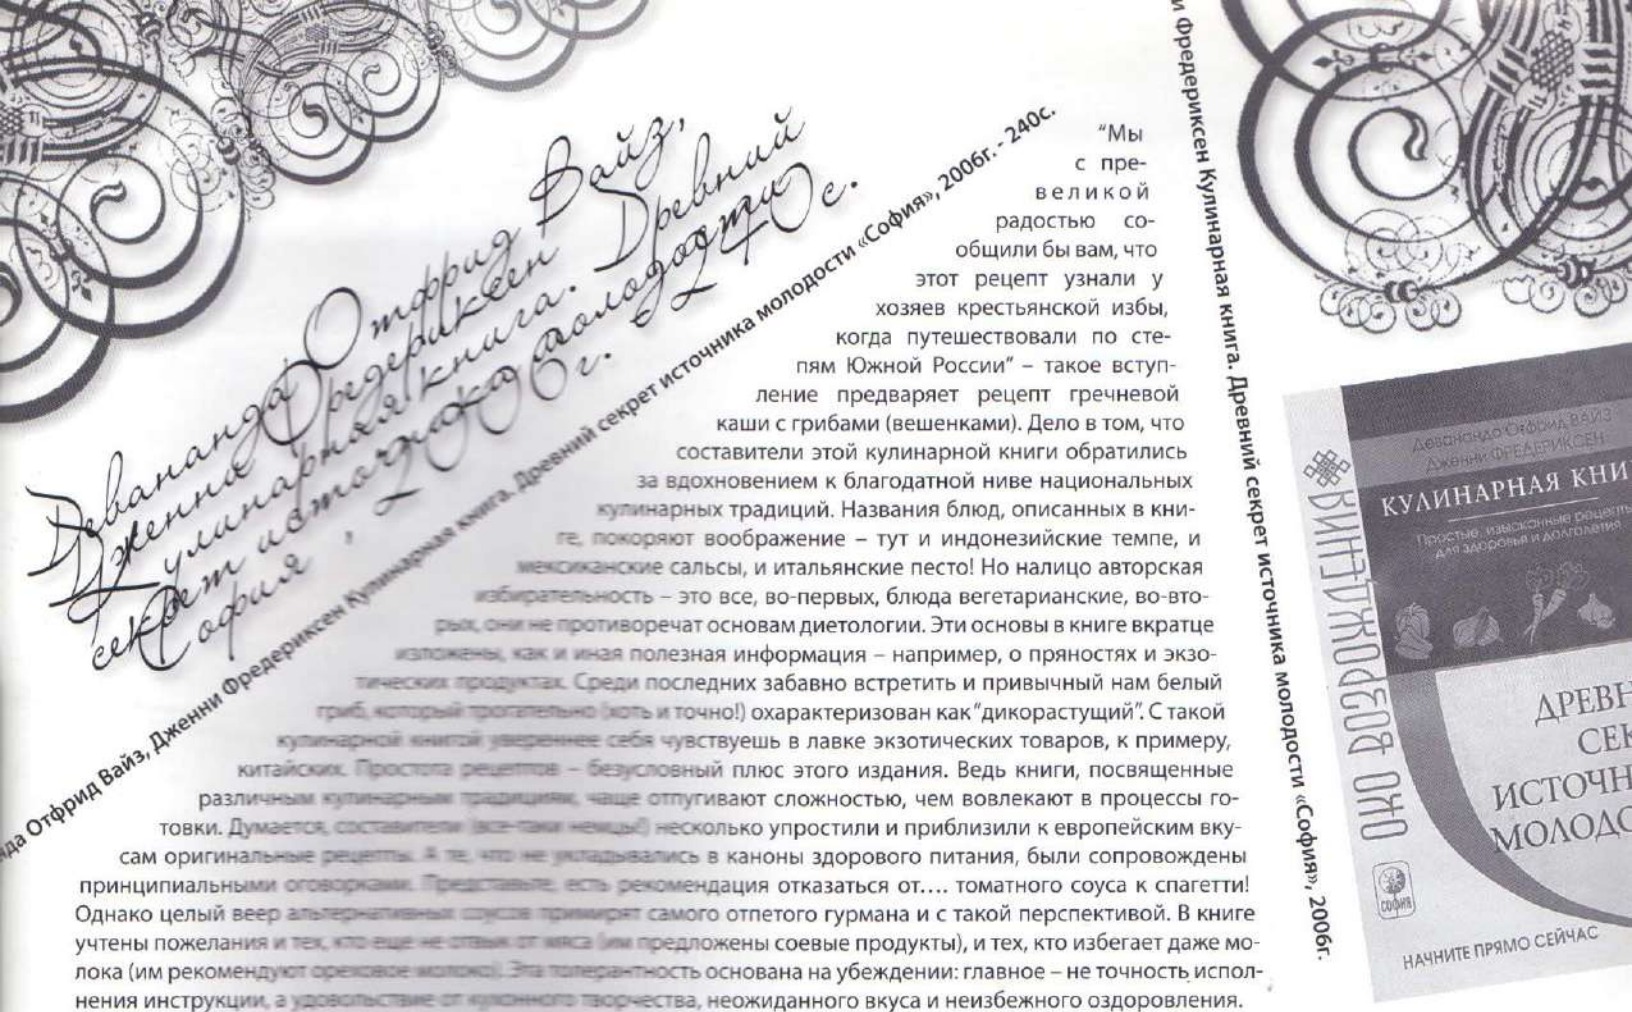 Девананда Отфрид Вайз,
Дженни Фредериксен
Кулинарная книга. Древний
секрет источника молодости
София , 2006г. 240с.
нда Отфрид Вайз, Дженни Фредериксен Кулинарная книга. Древний секрет источника молодости «София», 2006г. - 240с.
"Мы
с пре-
великой
радостью со-
общили бы вам, что
этот рецепт узнали у
хозяев крестьянской избы,
когда путешествовали по сте-
пям Южной России" – такое вступ-
ление предваряет рецепт гречневой
каши с грибами (вешенками). Дело в том, что
составители этой кулинарной книги обратились
за вдохновением к благодатной ниве национальных
кулинарных традиций. Названия блюд, описанных в кни-
ге, покоряют воображение – тут и индонезийские темпе, и
мексиканские сальсы, и итальянские песто! Но налицо авторская
избирательность – это все, во-первых, блюда вегетарианские, во-вто-
рых, они не противоречат основам диетологии. Эти основы в книге вкратце
изложены, как и иная полезная информация – например, о пряностях и экзо-
тических продуктах. Среди последних забавно встретить и привычный нам белый
гриб, который трогательно (хоть и точно!) охарактеризован как "дикорастущий". С такой
кулинарной книгой увереннее себя чувствуешь в лавке экзотических товаров, к примеру,
китайских. Простота рецептов – безусловный плюс этого издания. Ведь книги, посвященные
различным кулинарным традициям, чаще отпугивают сложностью, чем вовлекают в процессы го-
товки. Думается, составители (все-таки немцы!) несколько упростили и приблизили к европейским вку-
сам оригинальные рецепты. А те, что не укладывались в каноны здорового питания, были сопровождены
принципиальными оговорками. Представьте, есть рекомендация отказаться от.... томатного соуса к спагетти!
Однако целый веер альтернативных соусов примирят самого отпетого гурмана и с такой перспективой. В книге
учтены пожелания и тех, кто еще не отвык от мяса (им предложены соевые продукты), и тех, кто избегает даже мо-
лока (им рекомендуют ореховое молоко). Эта толерантность основана на убеждении: главное – не точность испол-
нения инструкции, а удовольствие от кухонного творчества, неожиданного вкуса и неизбежного оздоровления.
и Фредериксен Кулинарная книга. Древний секрет источника молодости «София», 2006г.
ОКО ВОЗРОЖДЕНИЯ
Девананда Отфрид ВАЙЗ
Дженни ФРЕДЕРИКСЕН
КУЛИНАРНАЯ КНИ
Простые, изысканные рецепты
для здоровья и долголетия
ДРЕВН
СЕК
ИСТОЧН
МОЛОДО
СОФИЯ
НАЧНИТЕ ПРЯМО СЕЙЧАС